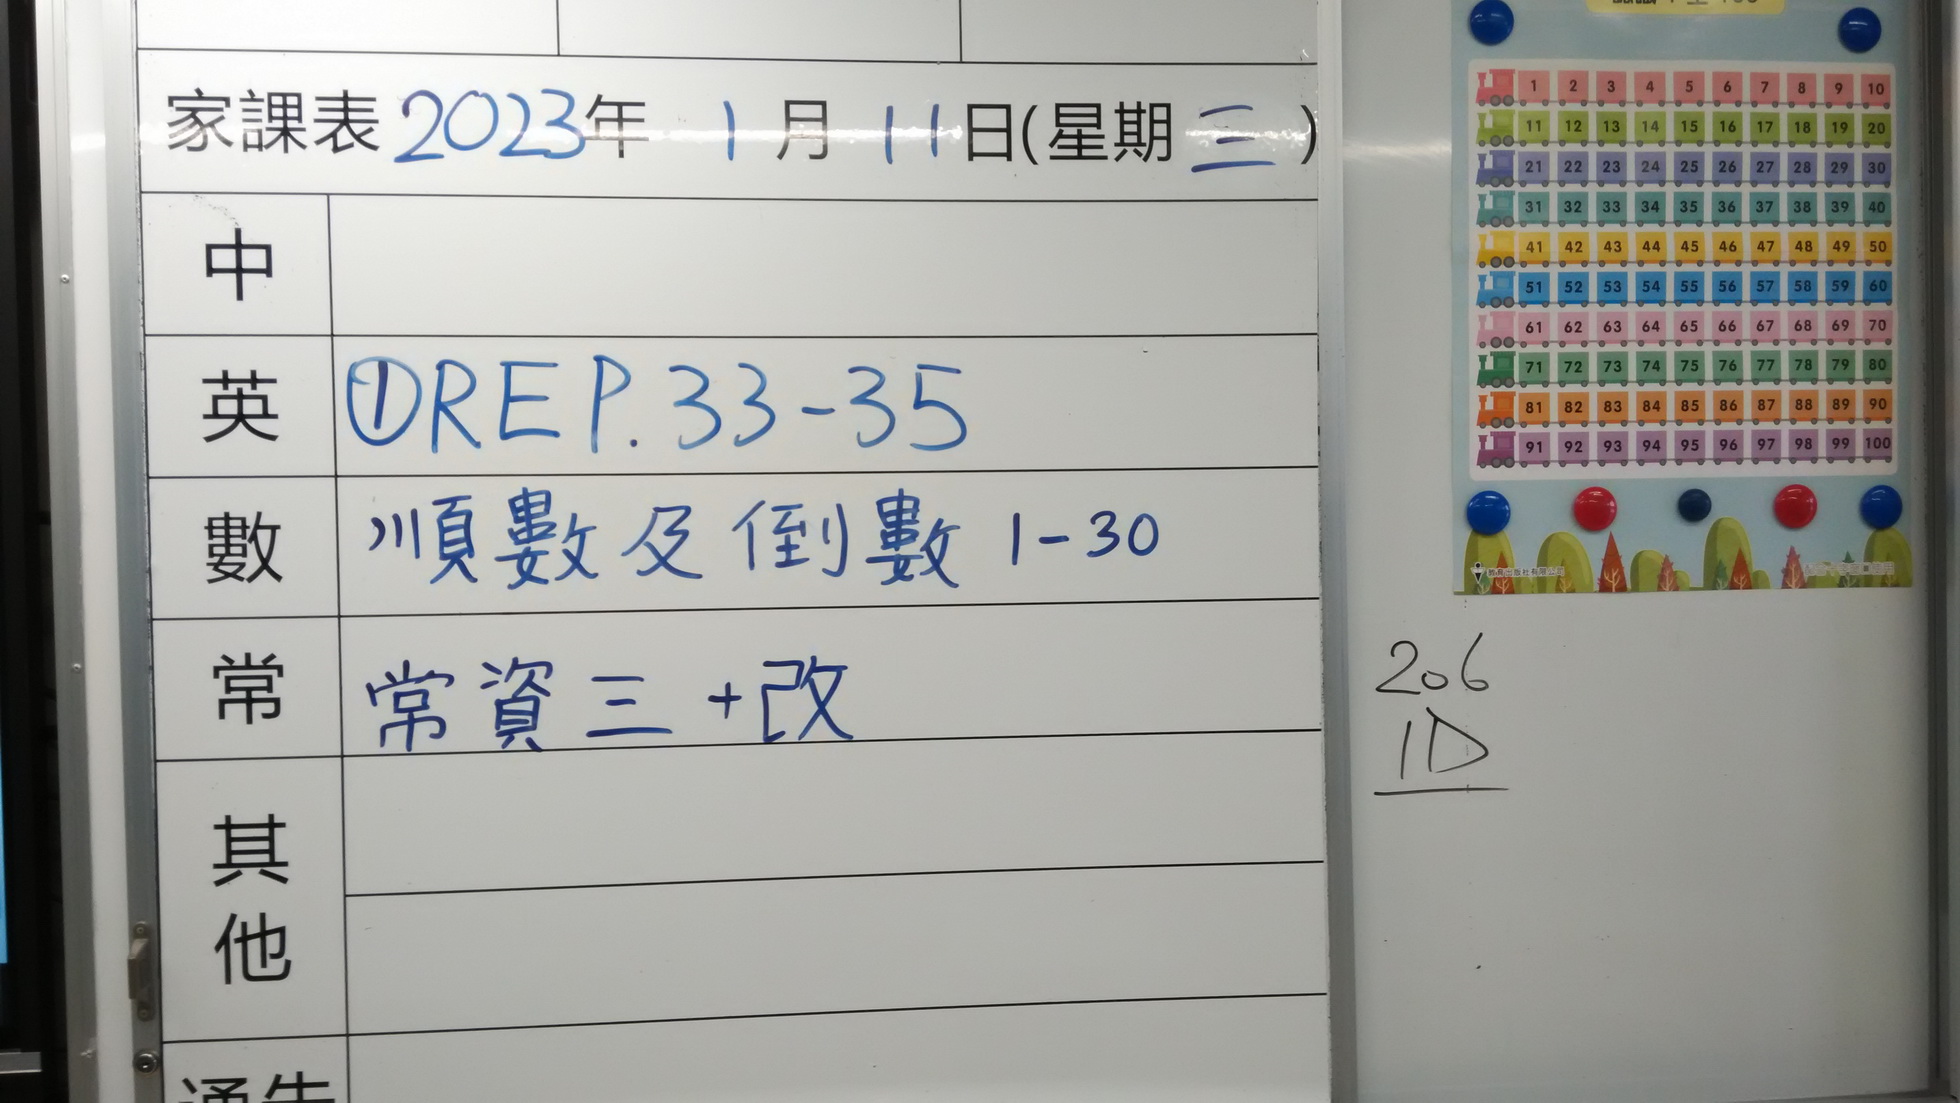 家課表 2023年 1月 11日(星期 三)
中
英 ①REP. 33-35
數 順數及倒數 1-30
常 常資三 +改
其他
通告
1 2 3 4 5 6 7 8 9 10
11 12 13 14 15 16 17 18 19 20
21 22 23 24 25 26 27 28 29 30
31 32 33 34 35 36 37 38 39 40
41 42 43 44 45 46 47 48 49 50
51 52 53 54 55 56 57 58 59 60
61 62 63 64 65 66 67 68 69 70
71 72 73 74 75 76 77 78 79 80
81 82 83 84 85 86 87 88 89 90
91 92 93 94 95 96 97 98 99 100
教育出版社有限公司
206
1D